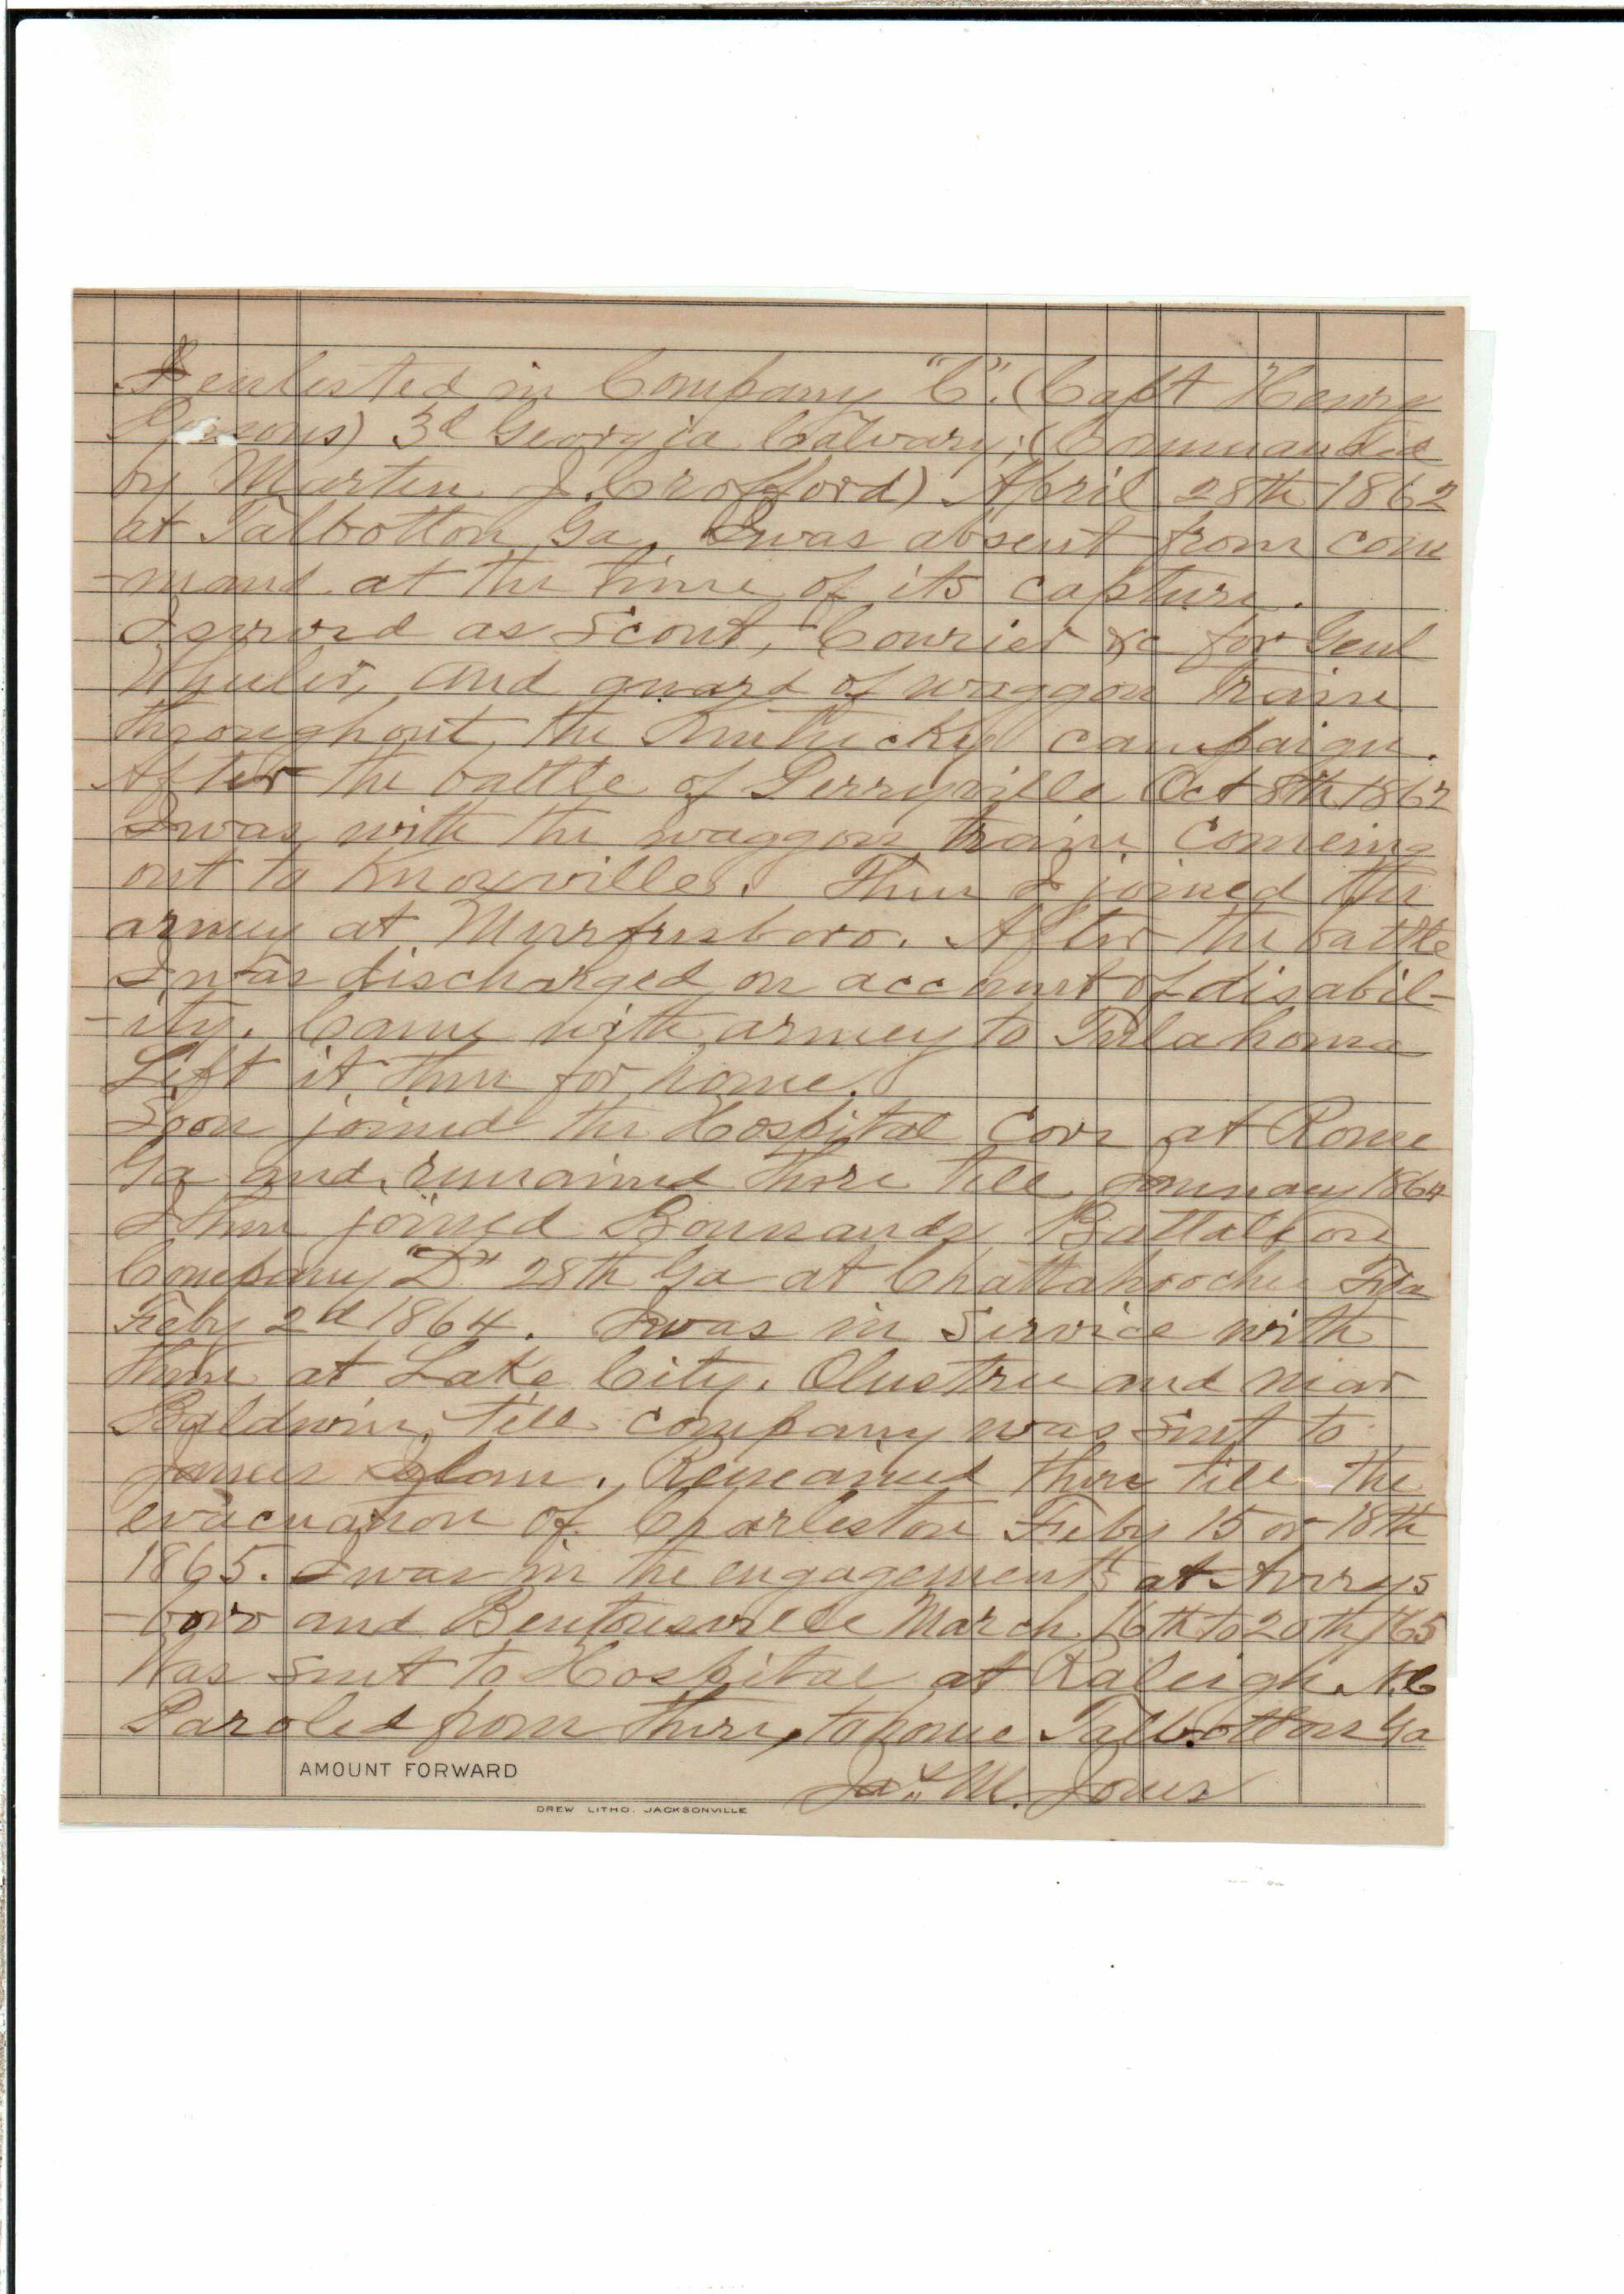 I enlisted in Company "C". (Capt Henry
Persons) 3d Georgia Calvary; (Commanded
by Marten J. Crofford) April 28th 1862
at Talbotton Ga. I was absent from com
-mand at the time of its capture.
I served as Scout, Courier &c for Genl
Wheeler, and guard of waggon train
throughout the Kentucky campaign.
After the battle of Perryville Oct 8th 1862
I was with the waggon train comeing
out to Knoxville. Then I joined the
army at Murfresboro. After the battle
I was discharged on account of disabil-
-ity. Came with armey to Tulahoma
Left it then for home.
Soon joined the Hospital Core at Rome
Ga and remained there till January 1864
I then joined Bonnauds Battalion
Company "D" 28th Ga at Chattahooche Fla
Feby 2d 1864. I was in Service with
them at Lake City, Olustree and near
Baldwin, till company was sent to
James Islan. Remained there till the
evacuation of Charleston Feby 15 or 18th
1865. I was in the engagements at Averys
-boro and Bentonsville March 16th to 20th /65
Was sent to Hospital at Raleigh N.C
Paroled from there, to home Talbotton Ga
Jas. M. Jones
AMOUNT FORWARD
DREW LITHO. JACKSONVILLE